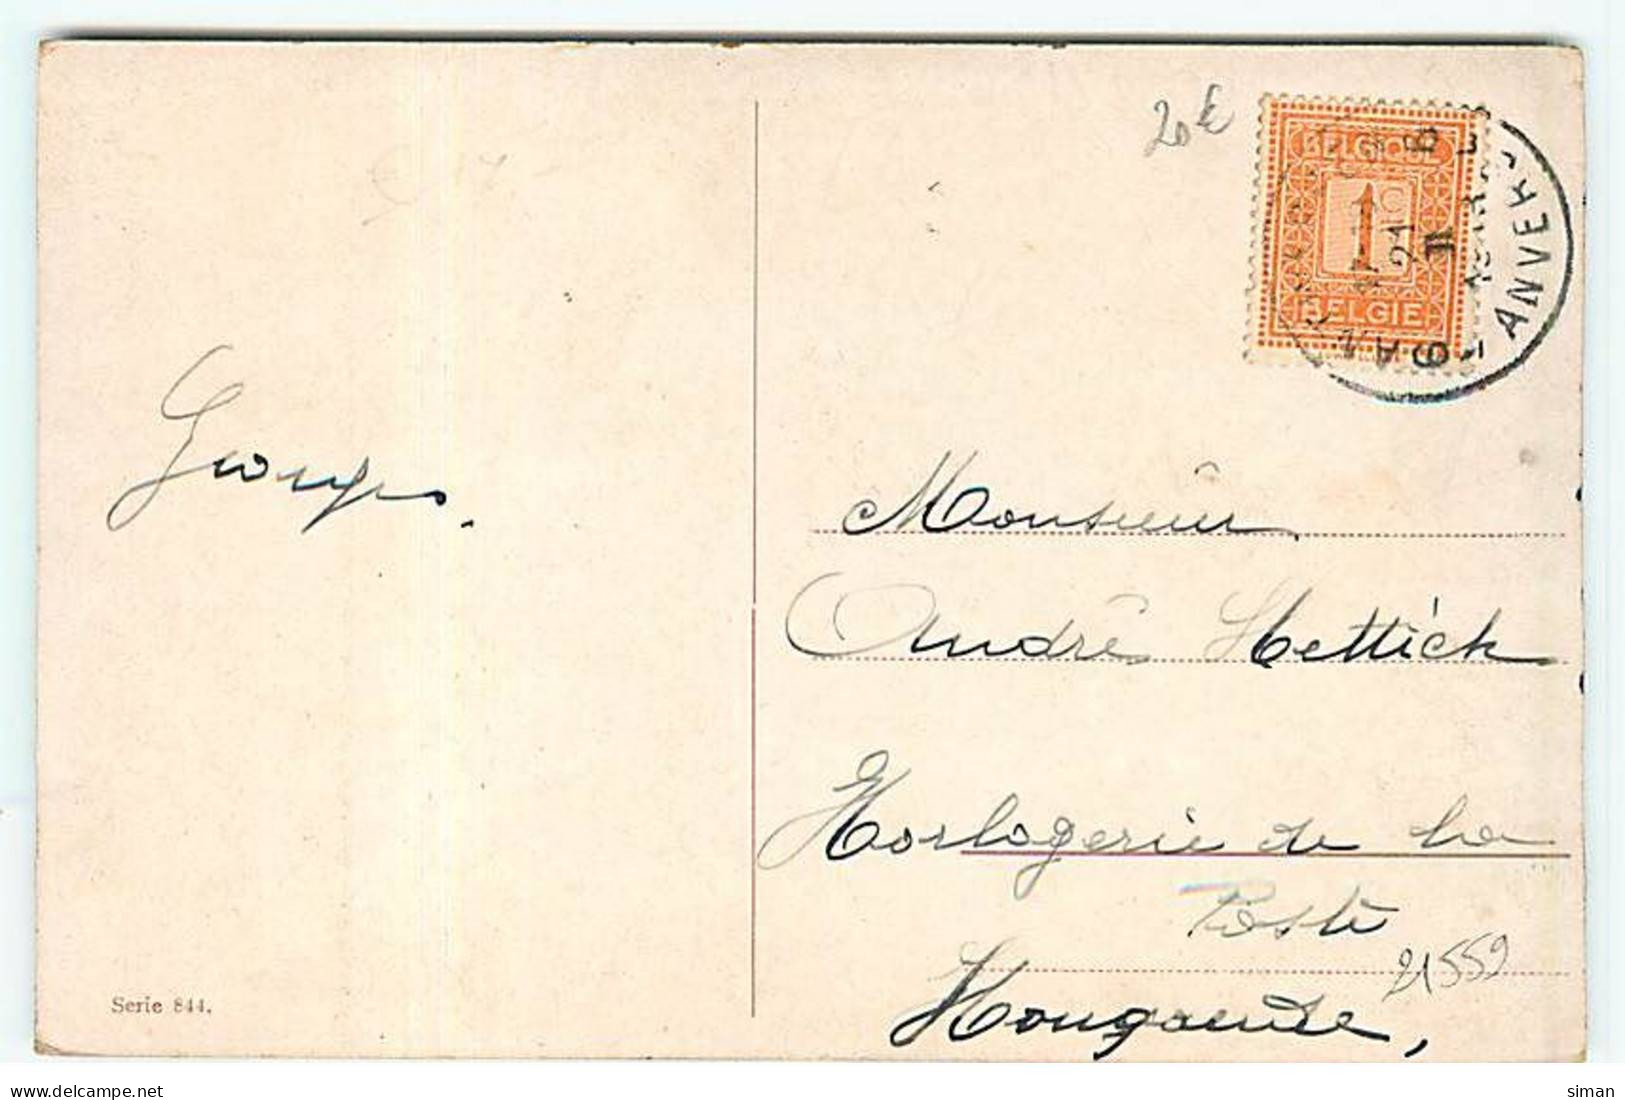 20 €
BELGIQUE
1 C
BELGIE
21
ANVERS
Georges.
Monsieur
André Hettick
Horlogerie de la
Poste
21559
Hougaerde,
Serie 844.
siman